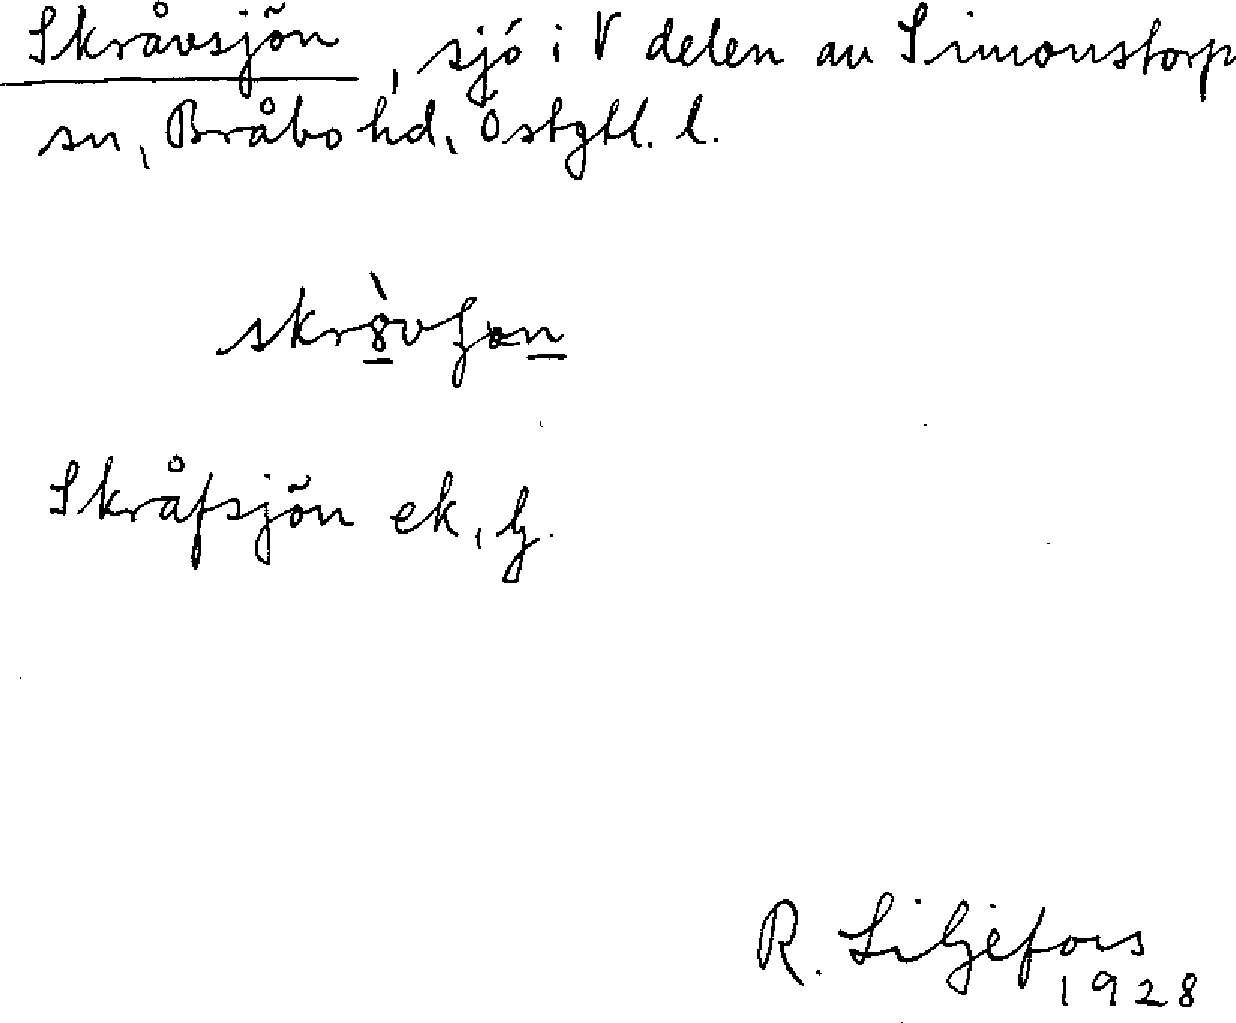 Skråvsjön, sjö i V delen av Simonstorp
sn, Bråbo hd, Östgtl. l.
Skråfsjön ek, lj.
R. Liljefors
1928